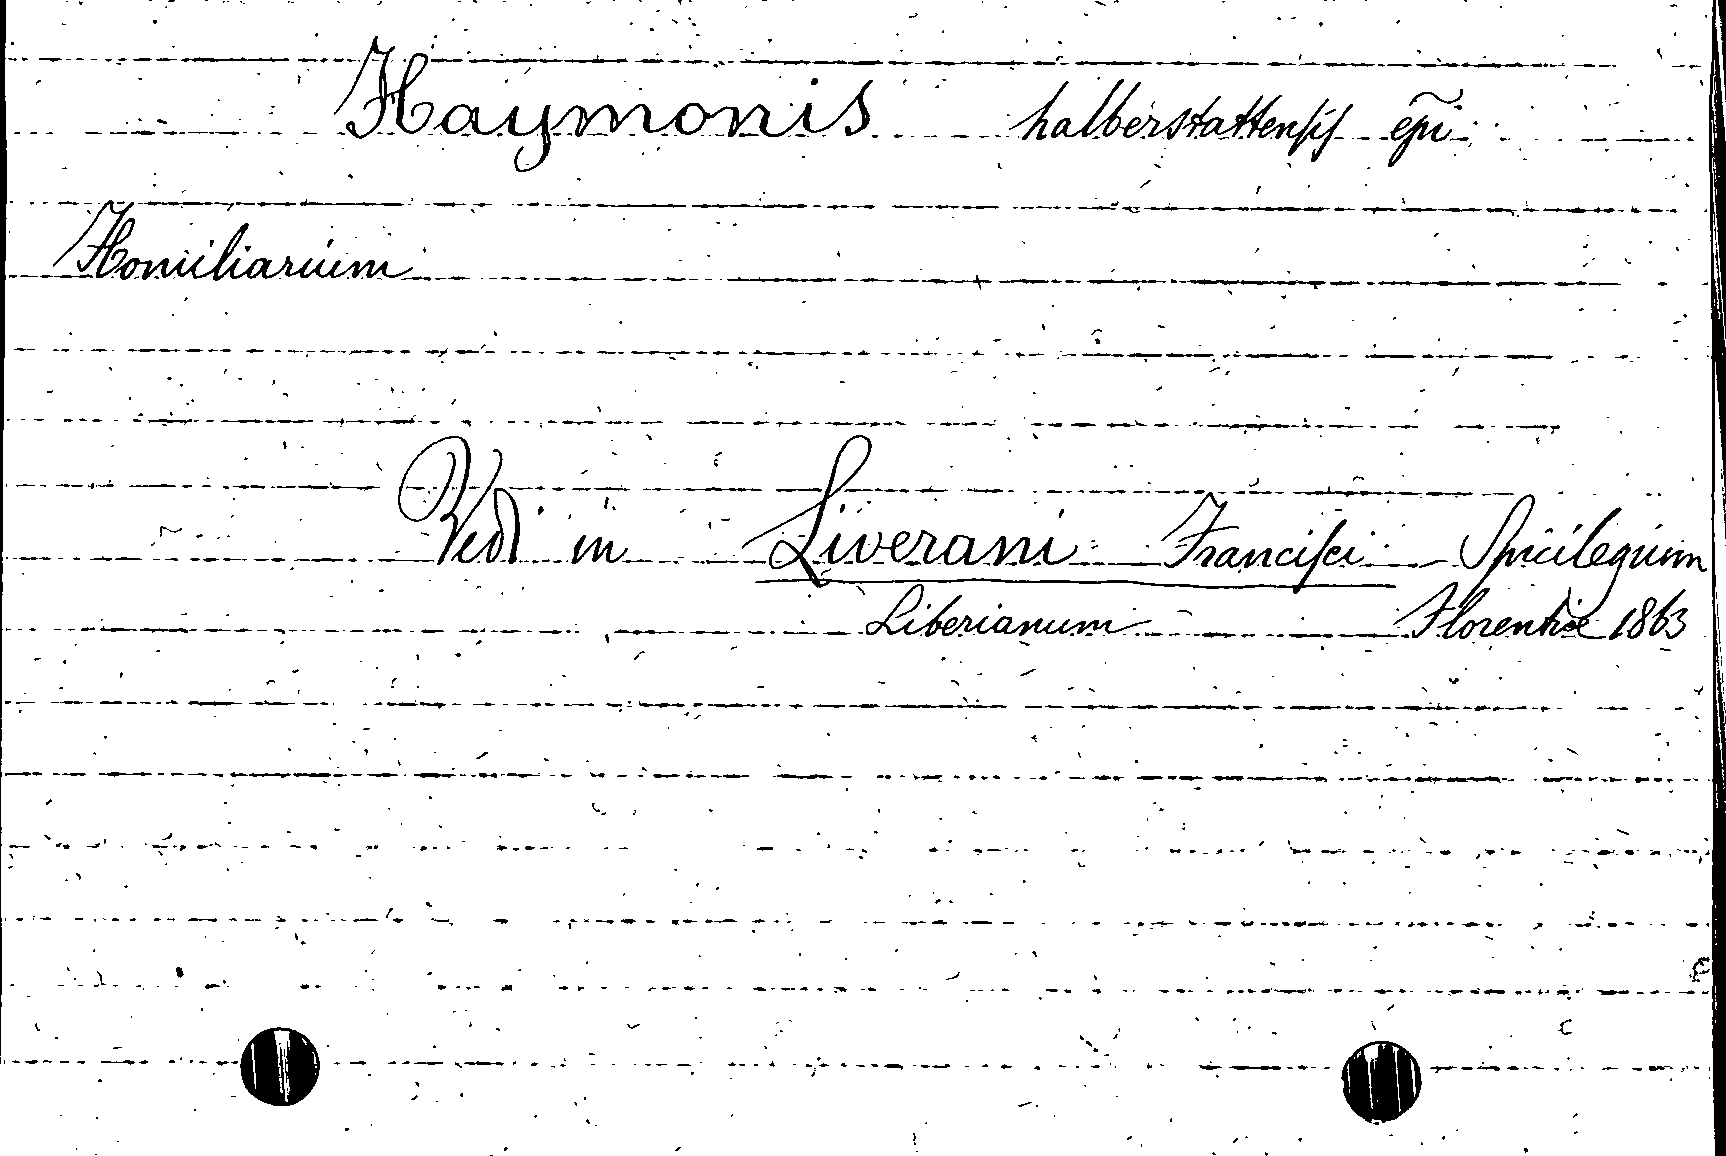 Haymonis halberstattensis ep̃i
Homiliarium
Vedi in Liverani Francisci Spicilegium
Liberianum Florentiæ 1863